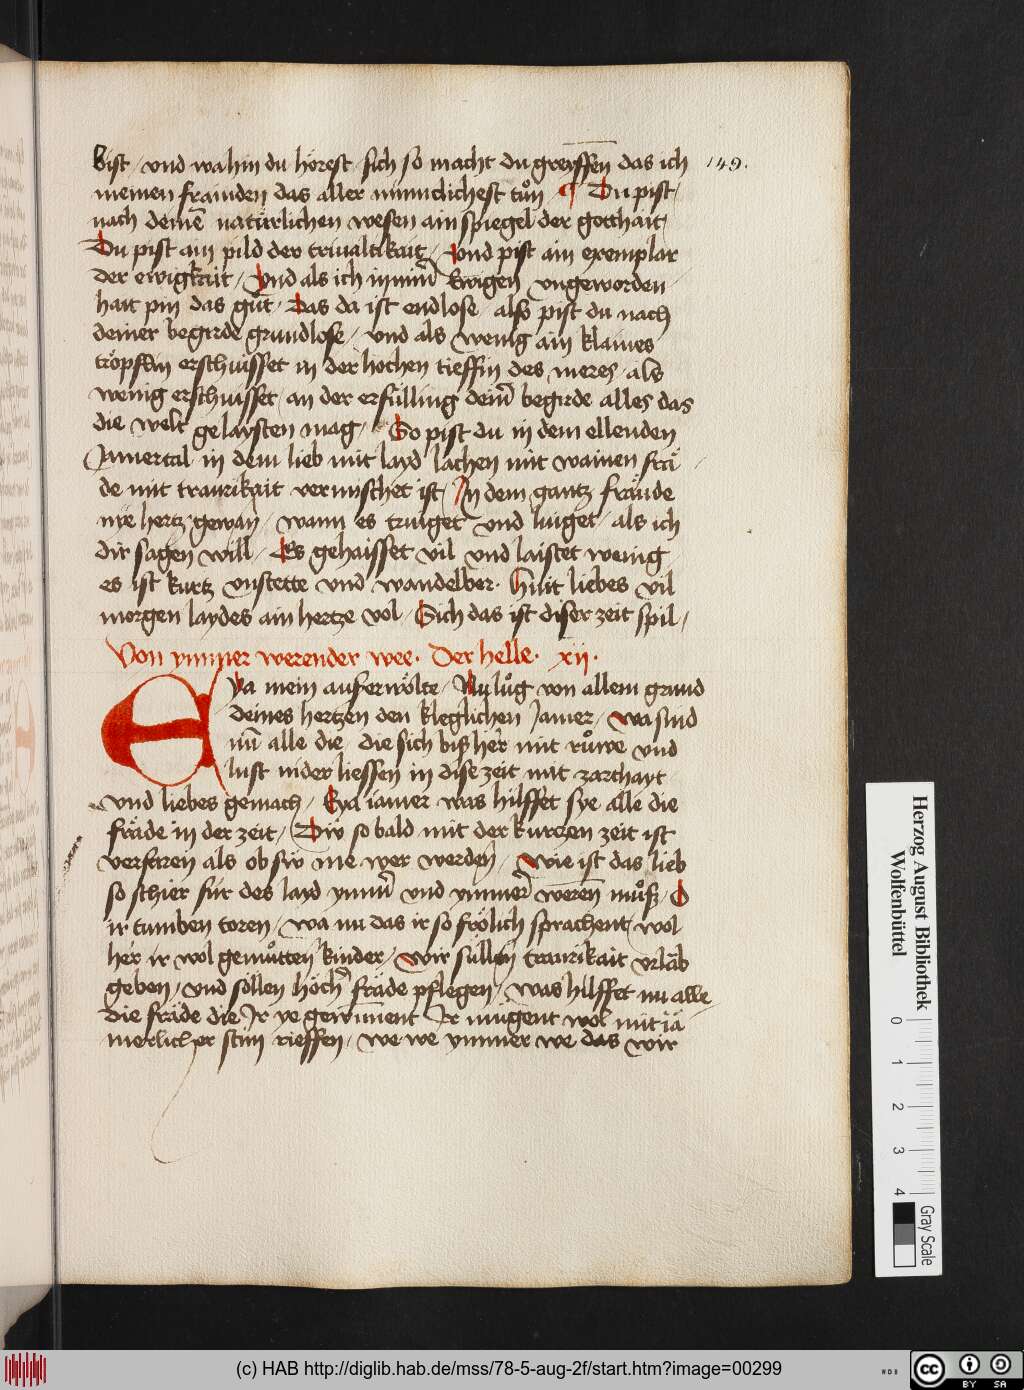 bist / vnd wahin du hörest sich so macht du greyffen das ich
149.
meinen frainden das aller minniclichest tůn ¶ Du pist /
nach deinē natürlichen wesen ain spiegel der gotthait /
Du pist ain pild der triualtikait / vnd pist ain exemplar
der ewigkait / Vnd als ich in minr̄ Ewigen vngeworden
hait pin das gůt / Das da ist endlose also pist du nach
deiner begirde grundlose / vnd als wenig ain klaines
tröpflin erschuisset in der hochen tieffin des meres / als
wenig erschuisset an der erfülling deinr̄ begirde alles das
die welt gelaysten mag / So pist du in dem ellenden
Jamertal in dem lieb mit layd lachen mit wainen frä
de mit traurikait vermischet ist / In dem gantz fräude
nie hertz gewan / wann es truiget vnd luiget / als ich
dir sagen will / Es gehaisset vil vnd laistet wenig
es ist kurtz vnstette vnd wandelber. Huit liebes vil
morgen laydes ain hertze vol / Sich das ist diser zeit spil /
Von ymmer werender wee. Der helle. xii.
Eya mein auserwölte / Nu lůg von allem grund
deines hertzen den kleglichen Jamer / wa sind
nū alle die / die sich bisz her mit růwe vnd
lust nider liessen in dise zeit mit zarthayt
vnd liebes gemach / Eya iamer was hilffet sye alle die
fräde in der zeit / Div so bald mit der kurtzen zeit ist
verfaren als ob siv nie wer werden / wie ist das lieb
so schier für des layd ymmr̄ vnd ymmer werēn můsz / O
ir tumben toren / wa nu das ir so frölich sprachent / wol
her ir wol gemůtten kinder / wir sullen traurikait vrlāb
geben / vnd söllen höchr̄ fräde pflegen / was hilffet nu alle
die fräde die Ir ye gewūnent Ir mugent wol mit iä
merlicher stim rieffen / we we ymmer we das wir
Herzog August Bibliothek
Wolfenbüttel
0 1 2 3 4
Gray Scale
(c) HAB http://diglib.hab.de/mss/78-5-aug-2f/start.htm?image=00299